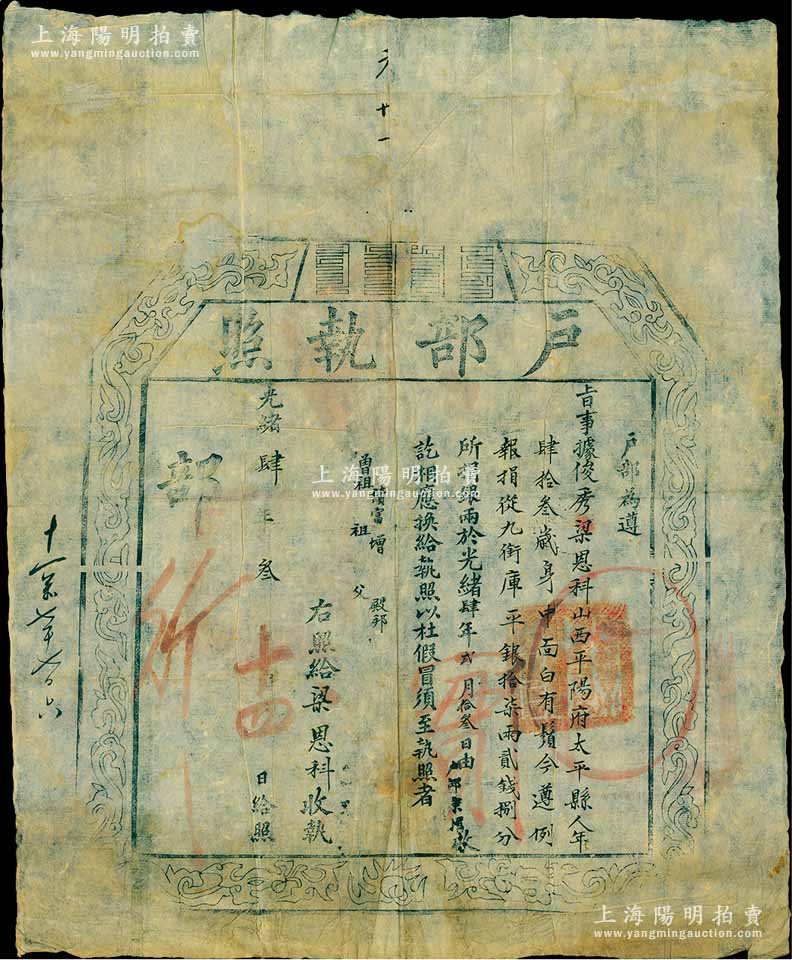 上海陽明拍賣
www.yangmingauction.com
十一
戶部執照
戶部為遵
旨事據俊秀梁恩科山西平陽府太平縣人年
肆拾叁歲身中面白有鬚今遵例
報捐從九銜庫平銀拾柒兩貳錢捌分
所捐銀兩於光緒肆年貳月拾叁日由
訖相應換給執照以杜假冒須至執照者
曾祖富增祖殿邦父
右照給梁恩科收執
光緒肆年叁十四日給照
部
行
上海陽明拍賣
www.yangmingauction.com
上海陽明拍賣
www.yangmingauction.com